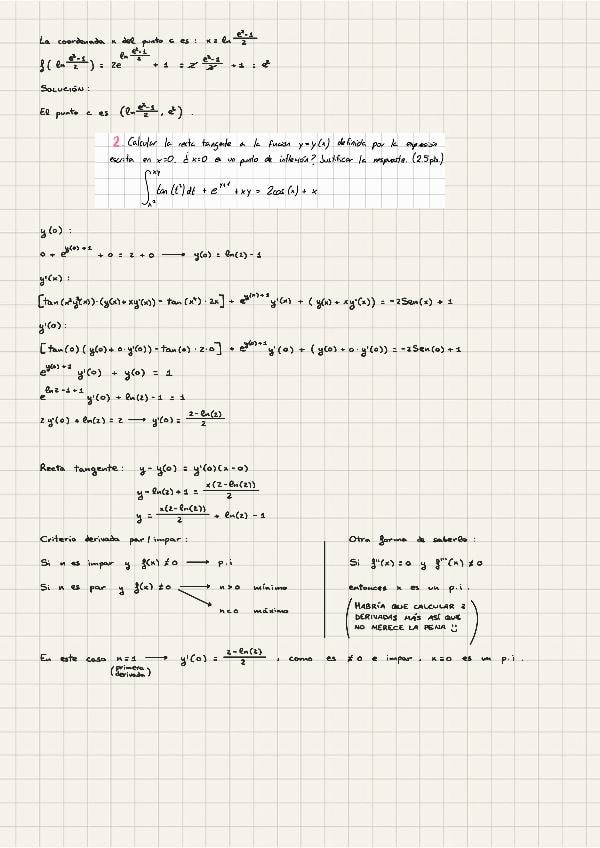 La coordenada x del punto c es: x = ln (e²-1)/2
f(ln (e²-1)/2) = 2e^(ln (e²-1)/2) + 1 = 2 (e²-1)/2 + 1 = e²
SOLUCIÓN:
El punto c es (ln (e²-1)/2, e²).
2. Calcular la recta tangente a la función y=y(x) definida por la expresión
escrita en x=0. ¿x=0 es un punto de inflexión? Justificar la respuesta. (2.5pts)
∫_{x²}^{xy} tan(t²)dt + e^{y+1} + xy = 2cos(x) + x
y(0):
0 + e^{y(0)+1} + 0 = 2 + 0 → y(0) = ln(2) - 1
y'(x):
[tan(x²y²(x))·(y(x)+xy'(x)) - tan(x⁴)·2x] + e^{y(x)+1} y'(x) + (y(x) + xy'(x)) = -2Sen(x) + 1
y'(0):
[tan(0)(y(0)+0·y'(0)) - tan(0)·2·0] + e^{y(0)+1} y'(0) + (y(0) + 0·y'(0)) = -2Sen(0) + 1
e^{y(0)+1} y'(0) + y(0) = 1
e^{ln2-1+1} y'(0) + ln(2) - 1 = 1
2y'(0) + ln(2) = 2 → y'(0) = (2-ln(2))/2
Recta tangente: y - y(0) = y'(0)(x-0)
y - ln(2) + 1 = x(2-ln(2))/2
y = x(2-ln(2))/2 + ln(2) - 1
Criterio derivada par/impar:
Si n es impar y f(x) ≠ 0 → p.i
Si n es par y f(x) ≠ 0 → n>0 mínimo
→ n<0 máximo
Otra forma de saberlo:
Si f''(x) = 0 y f'''(x) ≠ 0
entonces x es un p.i.
(HABRÍA QUE CALCULAR 2
DERIVADAS MÁS ASÍ QUE
NO MERECE LA PENA ü)
En este caso n=1 → y'(0) = (2-ln(2))/2, como es ≠ 0 e impar, x=0 es un p.i.
(primera
derivada)